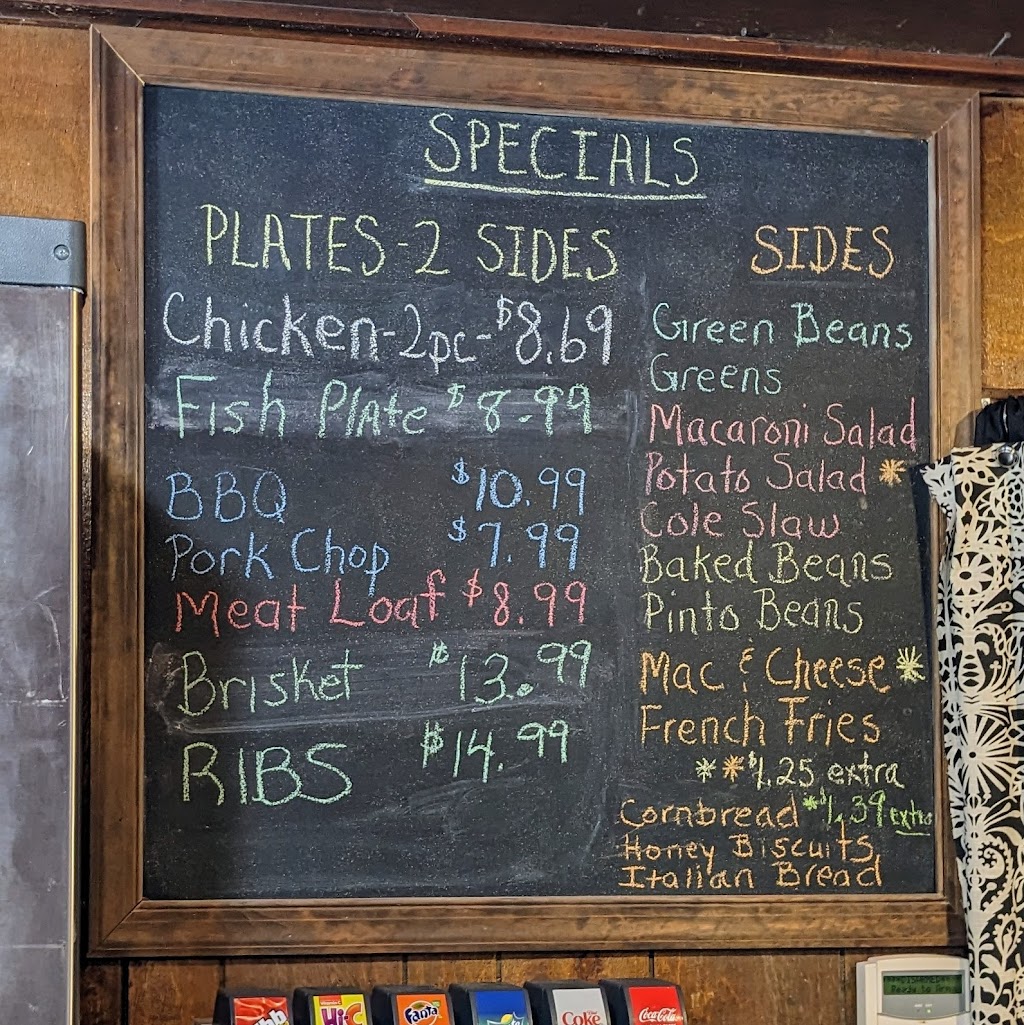 SPECIALS
PLATES-2 SIDES
Chicken-2pc-$8.69
Fish Plate $8.99
BBQ $10.99
Pork Chop $7.99
Meat Loaf $8.99
Brisket $13.99
RIBS $14.99
SIDES
Green Beans
Greens
Macaroni Salad
Potato Salad *
Cole Slaw
Baked Beans
Pinto Beans
Mac & Cheese *
French Fries
** $1.25 extra
Cornbread *$1.39 extra
Honey Biscuits,
Italian Bread
Hi-C
Fanta
Coke
Coca-Cola
Ready to Arm